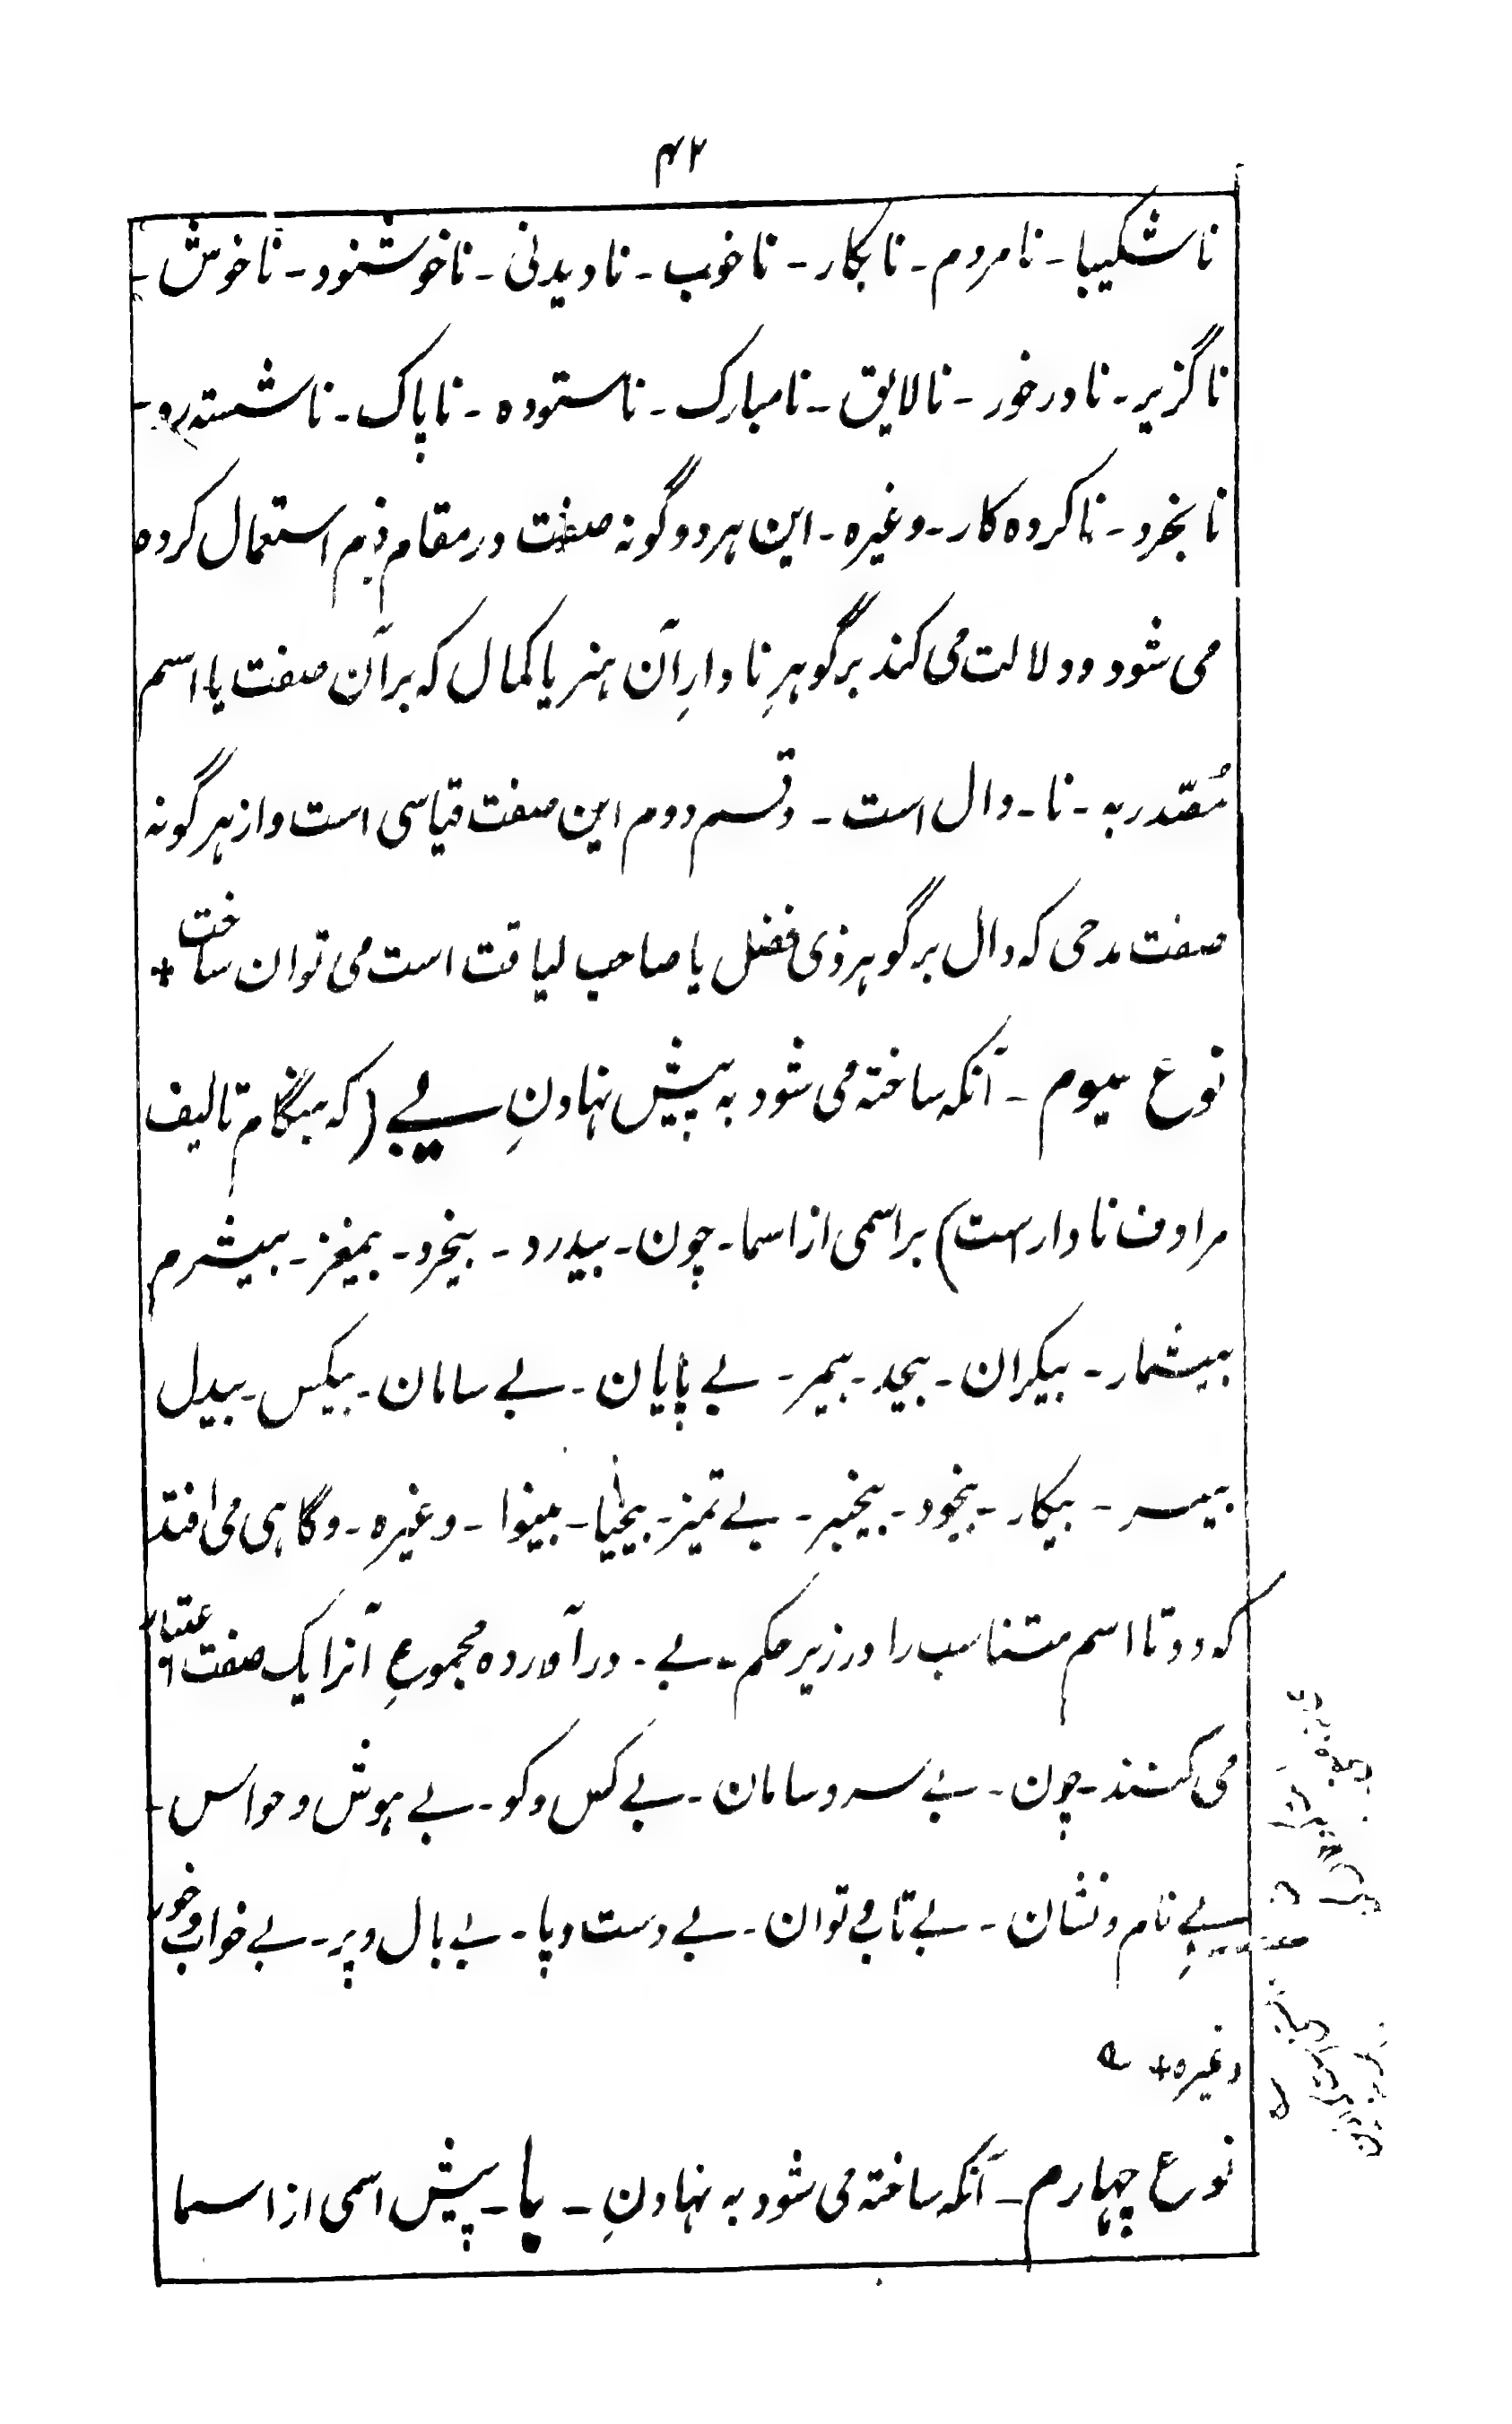 ۴۲
ناشکیبا - نامردم - نابکار - ناخوب - نادیدنی - ناخوشنود - ناخوش -
ناگزیر - نادرخور - نالایق - نامبارک - ناستوده - ناپاک - ناشسته رو -
نابخرد - ناکرده کار - وغیره - این هردوگونه صفت درمقام ذم استعمال کرده
می شود ودلالت می کند برگوهرِ نادارِ آن هنر یا کمال که برآن صفت یا اسم
مُصّدر به - نا - دال است - وقسم دوم این صفت قیاسی است واز هرگونه
صفت مدحی که دال برگوهر ذی فضل یا صاحب لیاقت است می توان ساخت +
نوع سیوم - آنکه ساخته می شود به پیش نهادنِ بے (که هنگام تالیف
مرادف نادار است) بر اسمی از اسما - چون - بیدرد - بیخرد - بیمغز - بیشرم
بیشمار - بیکران - بیحد - بیمر - بے پایان - بے سامان - بیکس - بیدل
بیسر - بیکار - بیخود - بیخبر - بے تمیز - بیحیا - بینوا - وغیره - وگاهی می افتد
که دوتا اسم متناسب را در زیر حکم - بے - در آورده مجموعِ آنرا یک صفت اعتبار
می کنند - چون - بے سروسامان - بے کس وکو - بے هوش وحواس -
بے نام ونشان - بے تاب وتوان - بے دست وپا - بے بال وپر - بے خواب وخور
وغیره +
نوع چهارم - آنکه ساخته می شود به نهادنِ - با - پیش اسمی از اسما